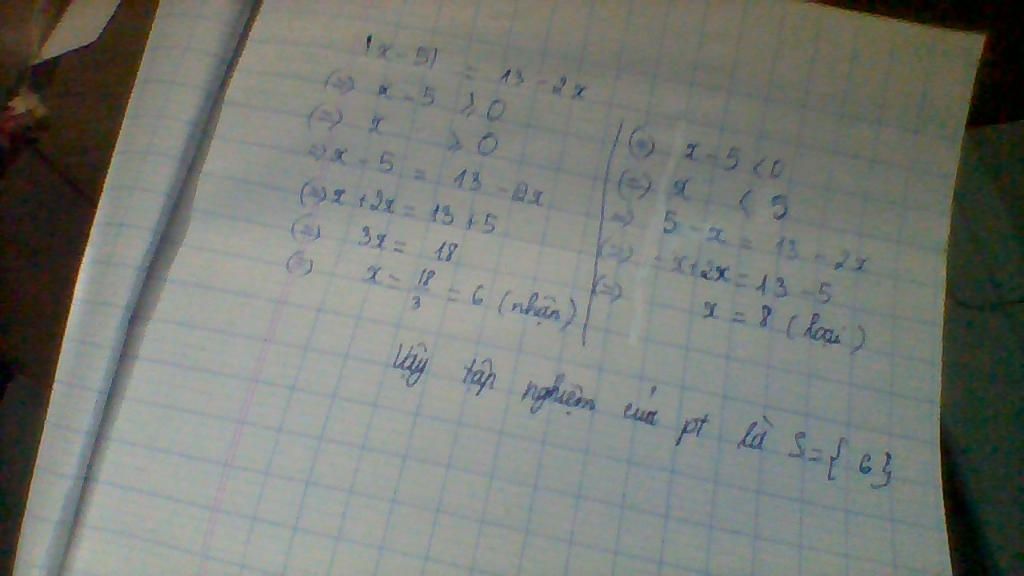 |x - 5| = 13 - 2x
(=) x - 5 ≥ 0
(=) x ≥ 0
=) x - 5 = 13 - 2x
(=) x + 2x = 13 + 5
(=) 3x = 18
(=) x = 18/3 = 6 (nhận)
(=) x - 5 < 0
(=) x < 5
=) 5 - x = 13 - 2x
(=) -x + 2x = 13 - 5
(=) x = 8 (loại)
Vậy tập nghiệm của pt là S = { 6 }